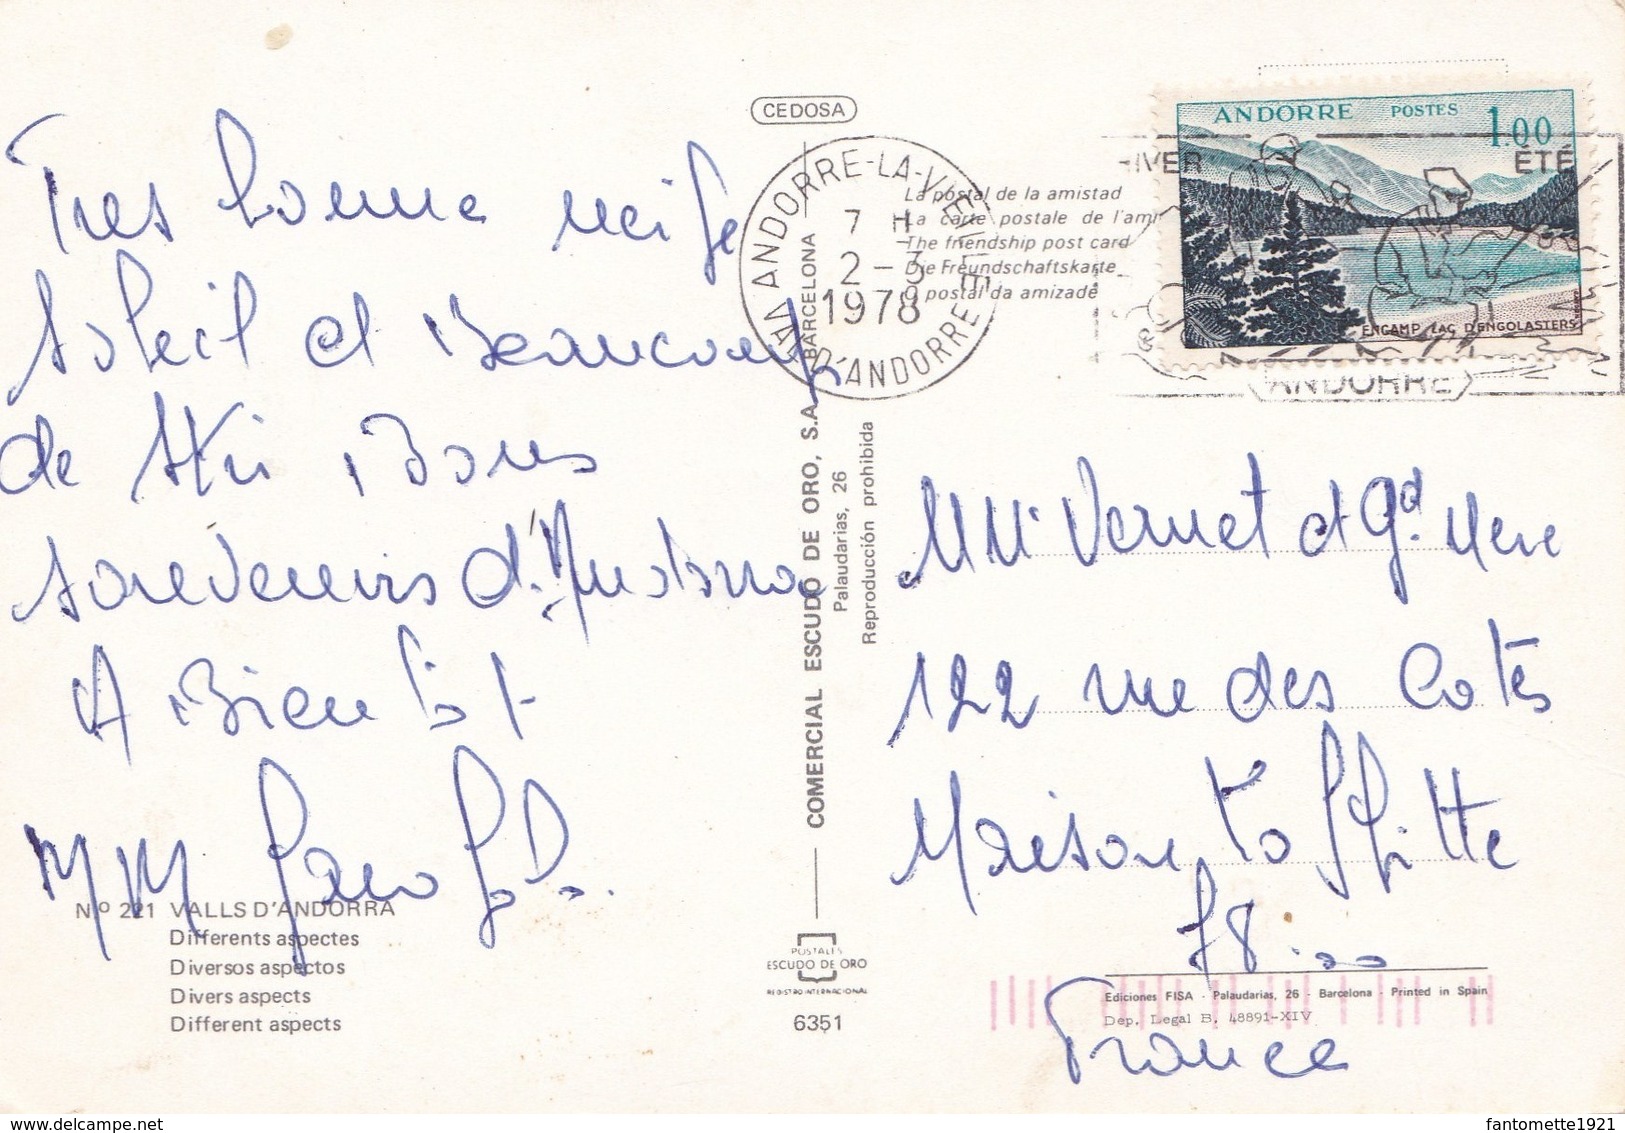 CEDOSA
Tres bonne neige
Soleil et Beaucoup
de Ski Bons
Souvenirs d'Andorra
A Bientôt
MM
ANDORRE-LA-VIEILLE
7 H
2-3
1978
VAL D'ANDORRE
La postal de la amistad
La carte postale de l'ami
The friendship post card
Die Freundschaftskarte
O postal da amizade
HIVER
ÉTÉ
ANDORRE
ANDORRE POSTES 1.00
ENCAMP LAC D'ENGOLASTERS
COMERCIAL ESCUDO DE ORO, S.A. BARCELONA
Palaudarias, 26
Reproducción prohibida
Vernet et Gd. Mere
122 rue des Cotés
Maison Laffitte
78
France
N.º 221 VALLS D'ANDORRA
Differents aspectes
Diversos aspectos
Divers aspects
Different aspects
POSTALES
ESCUDO DE ORO
REGISTRO INTERNACIONAL
6351
Ediciones FISA - Palaudarias, 26 - Barcelona - Printed in Spain
Dep. Legal B. 48891-XIV
delcampe.net
fantomette1921